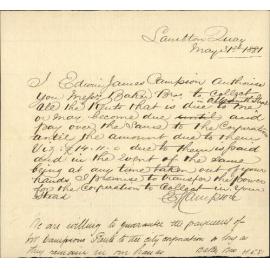 Lambton Quay
May 31st 1881
I Edwin James Campson authorise
you Messrs Baker Bros to Collect
all the Rents that is due to me
or may become due and
pay over the same to the Corporation
until the amount due to them
Viz £14.11.0 due to them is paid
and in the event of the same
being at any time taken out of your
hands I promise to transfer the power
for the Corporation to Collect in your
stead
E J Campson
We are willing to guarantee the payment of
Mr Campsons Rents to the city corporation as long as
they remain in our hands